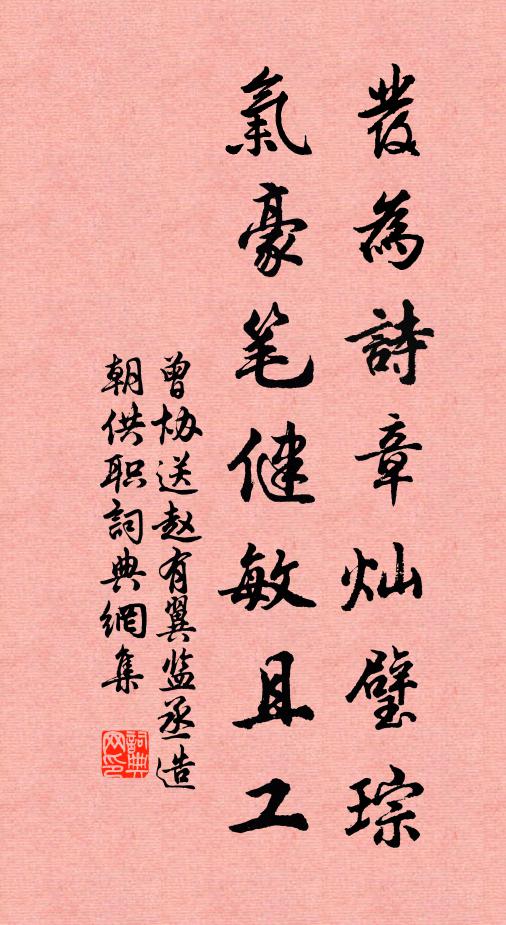 發為詩章灿璧琮
氣豪笔健敏且工
曾协送赵有翼监丞造
朝供职詞典網集
詞典
网印